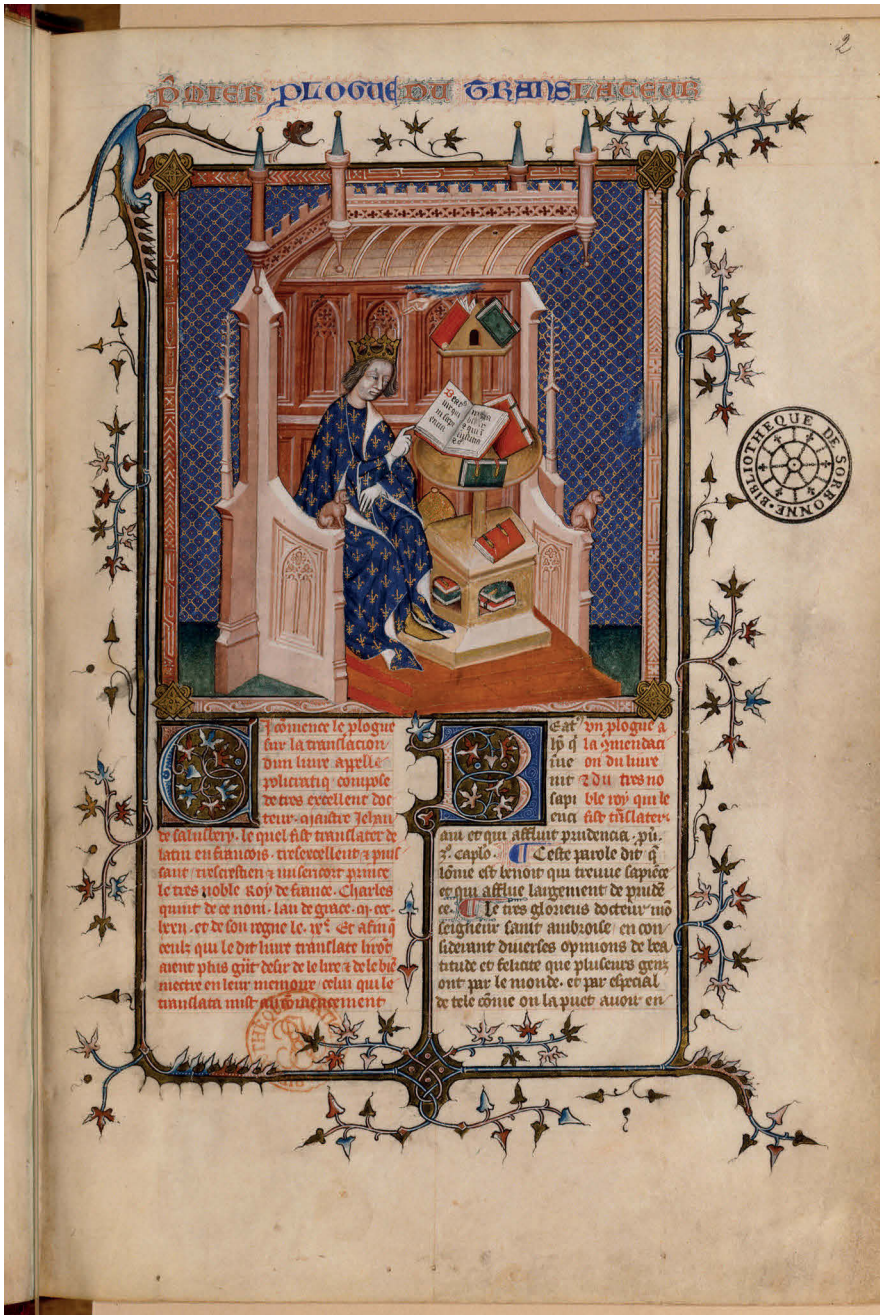 2
P̃MIER PLOGUE DU TRANSLATEUR
BIBLIOTHEQUE DE SORBONNE
CI cõmence le plogue
sur la translacion
dun liure appelle
policratiq compose
de tres excellent doc
teur maistre Jehan
de salusbery. le quel fist translater de
latin en francois. tresexcellent ⁊ puis
sant trescrestien ⁊ misericort prince
le tres noble Roy de france. Charles
quint de ce nom. lan de grace. m. ccc.
lxxii. et de son regne le. ixᵉ. Et afin q̃
ceulz qui le dit liure translate lirõt
aient plus grãt desir de le lire ⁊ de le biẽ
mectre en leur memoire celui qui le
translata mist au cõmencement
Beatꝰ vn plogue a
hõ q̃ la ꝯmendaci
iñue on du liure
nit ⁊ du tres no
sapi ble roy qui le
enci fist trãslater
am et qui affluit prudencia. pũ.
caplo. Ceste parole dit q̃
lõme est benoit qui treuue sapiẽce
et qui afflue largement de prudẽ
ce. Le tres glorieus docteur mõ
seigneur saint ambroise en con
siderant diuerses opinions de bea
titude et felicite que pluseurs genz
ont par le monde. et par especial
de tele cõme on la puet auoir en